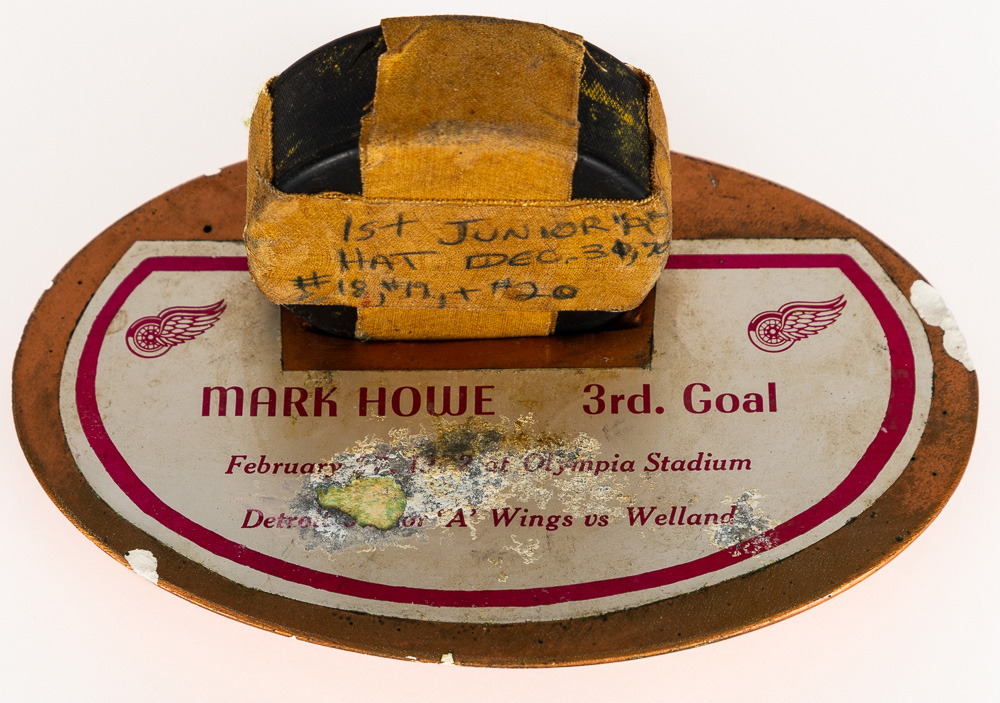 1ST JUNIOR "A"
HAT DEC. 
#18, #19, + #20
MARK HOWE 3rd. Goal
February at Olympia Stadium
Detroit Junior 'A' Wings vs Welland